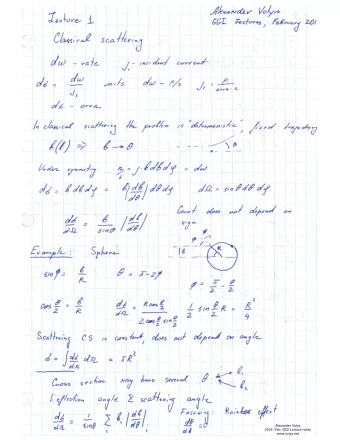 Lecture 1
Alexander Volya
GGI Lectures, February 201
Classical scattering
dw - rate   j₁ - incident current
dσ = dw / j₁   units   dw - P/s   j₁ =
dσ - area
In classical scattering the problem is "deterministic", fixed trajectory
θ(b) ⇒ b → θ
Under symmetry   j · b db dφ = dw
dσ = b db dφ = b |db/dθ| dθ dφ   dΩ = sinθ dθ dφ
dσ/dΩ = b/sinθ |db/dθ|   does not depend on sign
Example: Sphere
sin φ = b/R   θ = π - 2φ
φ = π/2 - θ/2
cos θ/2 = b/R   dσ/dΩ = R cos θ/2 / 2 cos θ/2 sin θ/2   1/2 sin θ/2 R = R²/4
Scattering CS is constant, does not depend on angle
σ = ∫ dσ/dΩ dΩ = πR²
Cross section may have several θ   b₁   b₂
Deflection angle & scattering angle
dσ/dΩ = 1/sinθ Σ bᵢ |dbᵢ/dθ|   Rainbow effect
Alexander Volya
GGI Lecture notes
www.volya.net